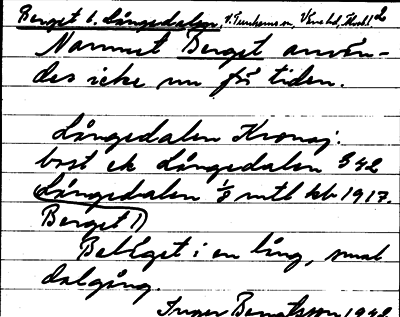 Berget l. Långedalen,
Namnet Berget använ-
des icke nu för tiden.
Långedalen Kronoj.
bost ek Långedalen § 42
Långedalen 1/8 mtl kb 1917.
Berget)
Beläget i en lång, smal
dalgång.
Inger Bengtsson 1942